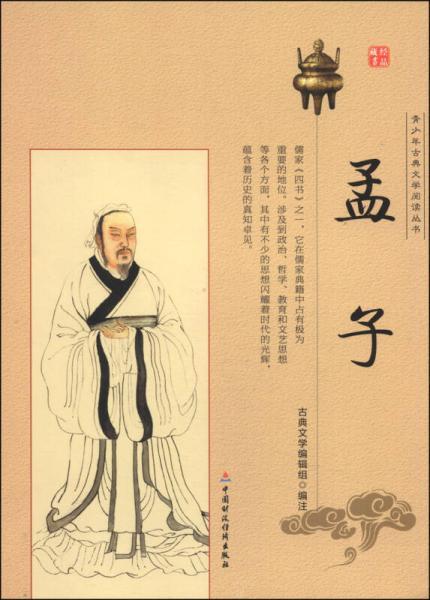 经品
藏書
青少年古典文学阅读丛书
孟子
儒家《四书》之一，它在儒家典籍中占有极为
重要的地位。涉及到政治、哲学、教育和文艺思想
等各个方面，其中有不少的思想闪耀着时代的光辉，
蕴含着历史的真知卓见。
古典文学编辑组◎编注
中国财政经济出版社